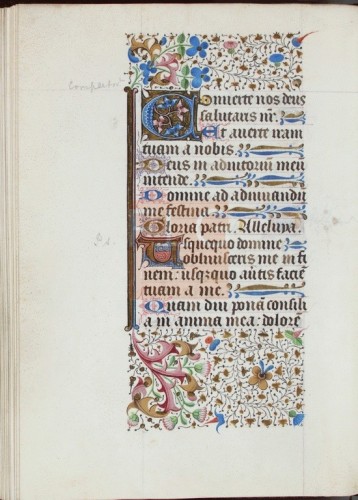 Converte nos deus
salutaris nr̄.
Et averte iram
tuam a nobis.
Deus in adiutoriū meū
intende.
Domine ad adiuvandū
me festina.
Gloria patri. Alleluya.
Usquequo domine
oblivisceris me in fi
nem: usqꝫquo avertis faciē
tuam a me.
Quam diu ponā consili
a in anima mea: dolorē